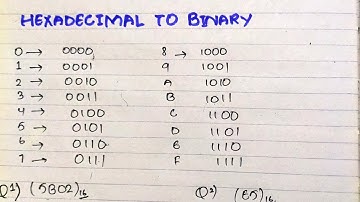 HEXADECIMAL TO BINARY
0 → 0000 8 → 1000
1 → 0001 9 1001
2 → 0010 A 1010
3 → 0011 B 1011
4 → 0100 C 1100
5 → 0101 D 1101
6 → 0110 E 1110
7 → 0111 F 1111
Q1) (5B02)16 Q2) (E5)16